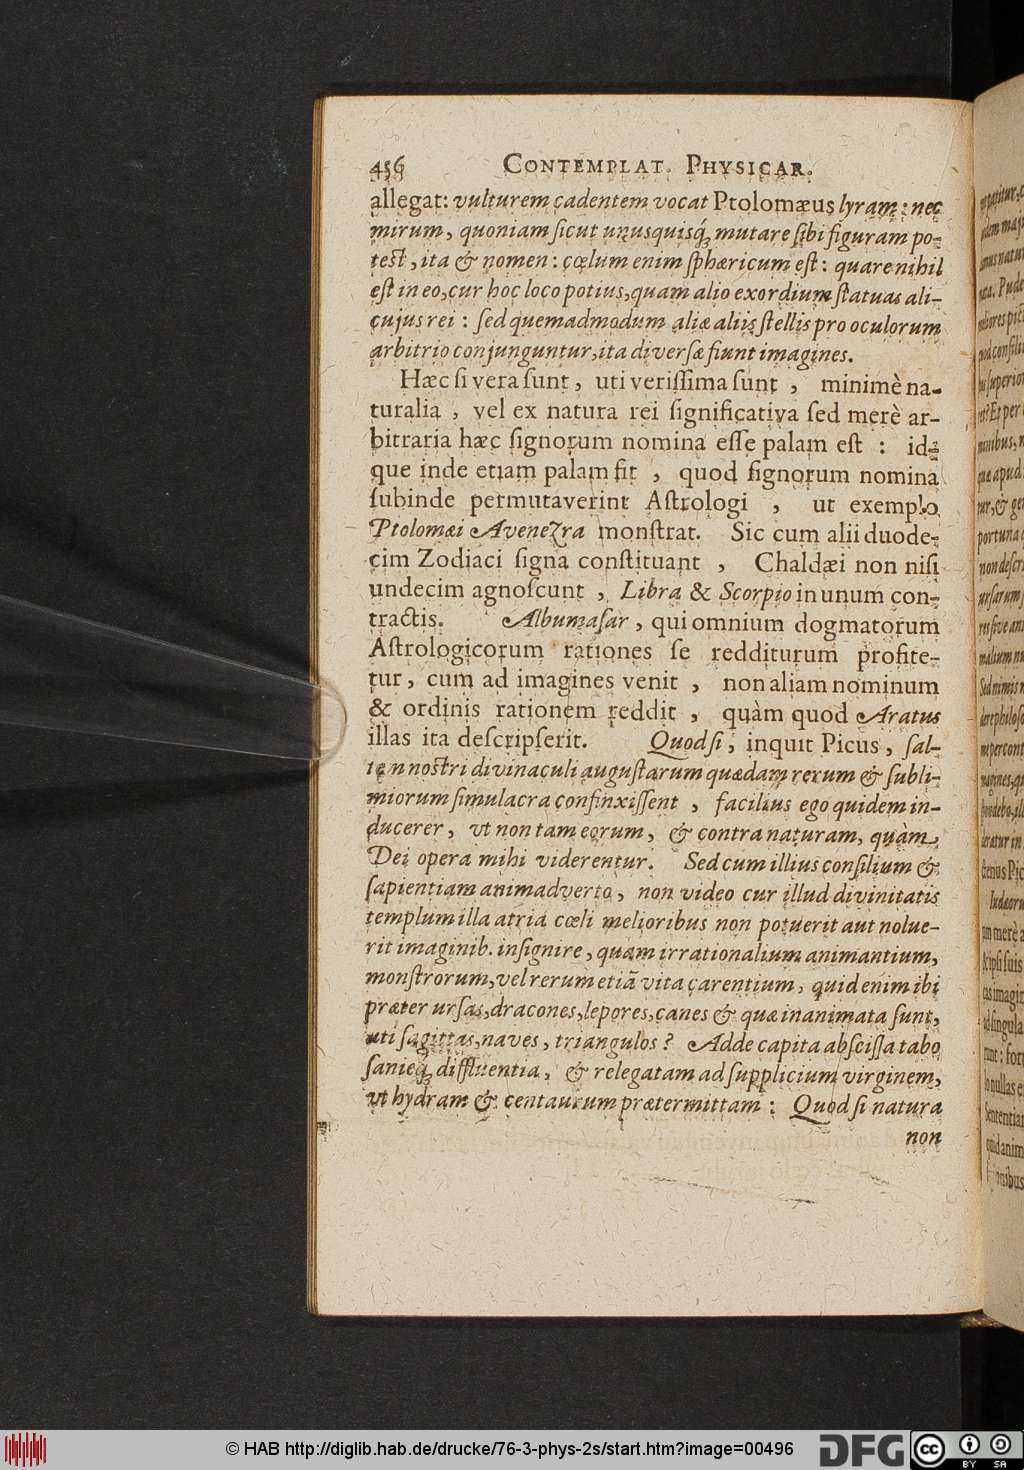 456 CONTEMPLAT. PHYSICAR.
allegat: vulturem cadentem vocat Ptolomæus lyram: nec
mirum, quoniam ſicut unusquisq́; mutare ſibi figuram po-
teſt, ita & nomen: cœlum enim ſphæricum eſt: quare nihil
eſt in eo, cur hoc loco potius, quam alio exordium ſtatuas ali-
cujus rei: ſed quemadmodum aliæ aliis ſtellis pro oculorum
arbitrio conjunguntur, ita diverſæ fiunt imagines.
Hæc ſi vera ſunt, uti veriſſima ſunt, minimè na-
turalia, vel ex natura rei ſignificativa ſed merè ar-
bitraria hæc ſignorum nomina eſſe palam eſt: id-
que inde etiam palam fit, quod ſignorum nomina
ſubinde permutaverint Aſtrologi, ut exemplo
Ptolomæi Avenezra monſtrat. Sic cum alii duode-
cim Zodiaci ſigna conſtituant, Chaldæi non niſi
undecim agnoſcunt, Libra & Scorpio in unum con-
tractis. Albumaſar, qui omnium dogmatorum
Aſtrologicorum rationes ſe redditurum profite-
tur, cum ad imagines venit, non aliam nominum
& ordinis rationem reddit, quàm quod Aratus
illas ita deſcripſerit. Quod ſi, inquit Picus, ſal-
tem noſtri divinaculi auguſtarum quædam rerum & ſubli-
miorum ſimulacra confinxiſſent, facilius ego quidem in-
ducerer, vt non tam eorum, & contra naturam, quàm
Dei opera mihi viderentur. Sed cum illius conſilium &
ſapientiam animadverto, non video cur illud divinitatis
templum illa atria cœli melioribus non potuerit aut nolue-
rit imaginib. inſignire, quam irrationalium animantium,
monſtrorum, vel rerum etiã vita carentium, quid enim ibi
præter urſas, dracones, lepores, canes & quæ inanimata ſunt,
uti ſagittas, naves, triangulos? Adde capita abſciſſa tabo
ſanieq́; diffluentia, & relegatam ad ſupplicium virginem,
vt hydram & centaurum prætermittam: Quod ſi natura
non
© HAB http://diglib.hab.de/drucke/76-3-phys-2s/start.htm?image=00496
DFG
cc BY SA